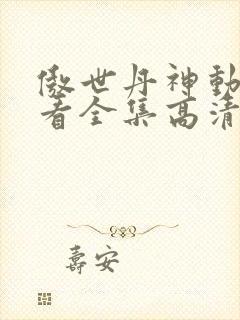 傲世丹神動
看全集高清
壽安